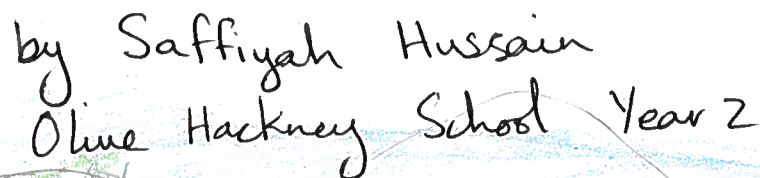 by Saffiyah Hussain
Olive Hackney School Year 2